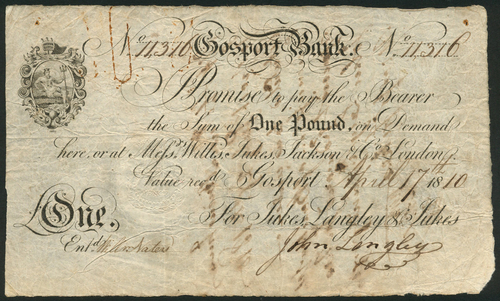 No. 11,376 Gosport Bank. No. 11,376
I Promise to pay the Bearer
the Sum of One Pound, on Demand
here, or at Messrs. Willis, Jukes, Jackson & Co. London,
Value recd. Gosport, April 17th 1810
For Jukes, Langley & Jukes
£One.
Entd.
John Langley